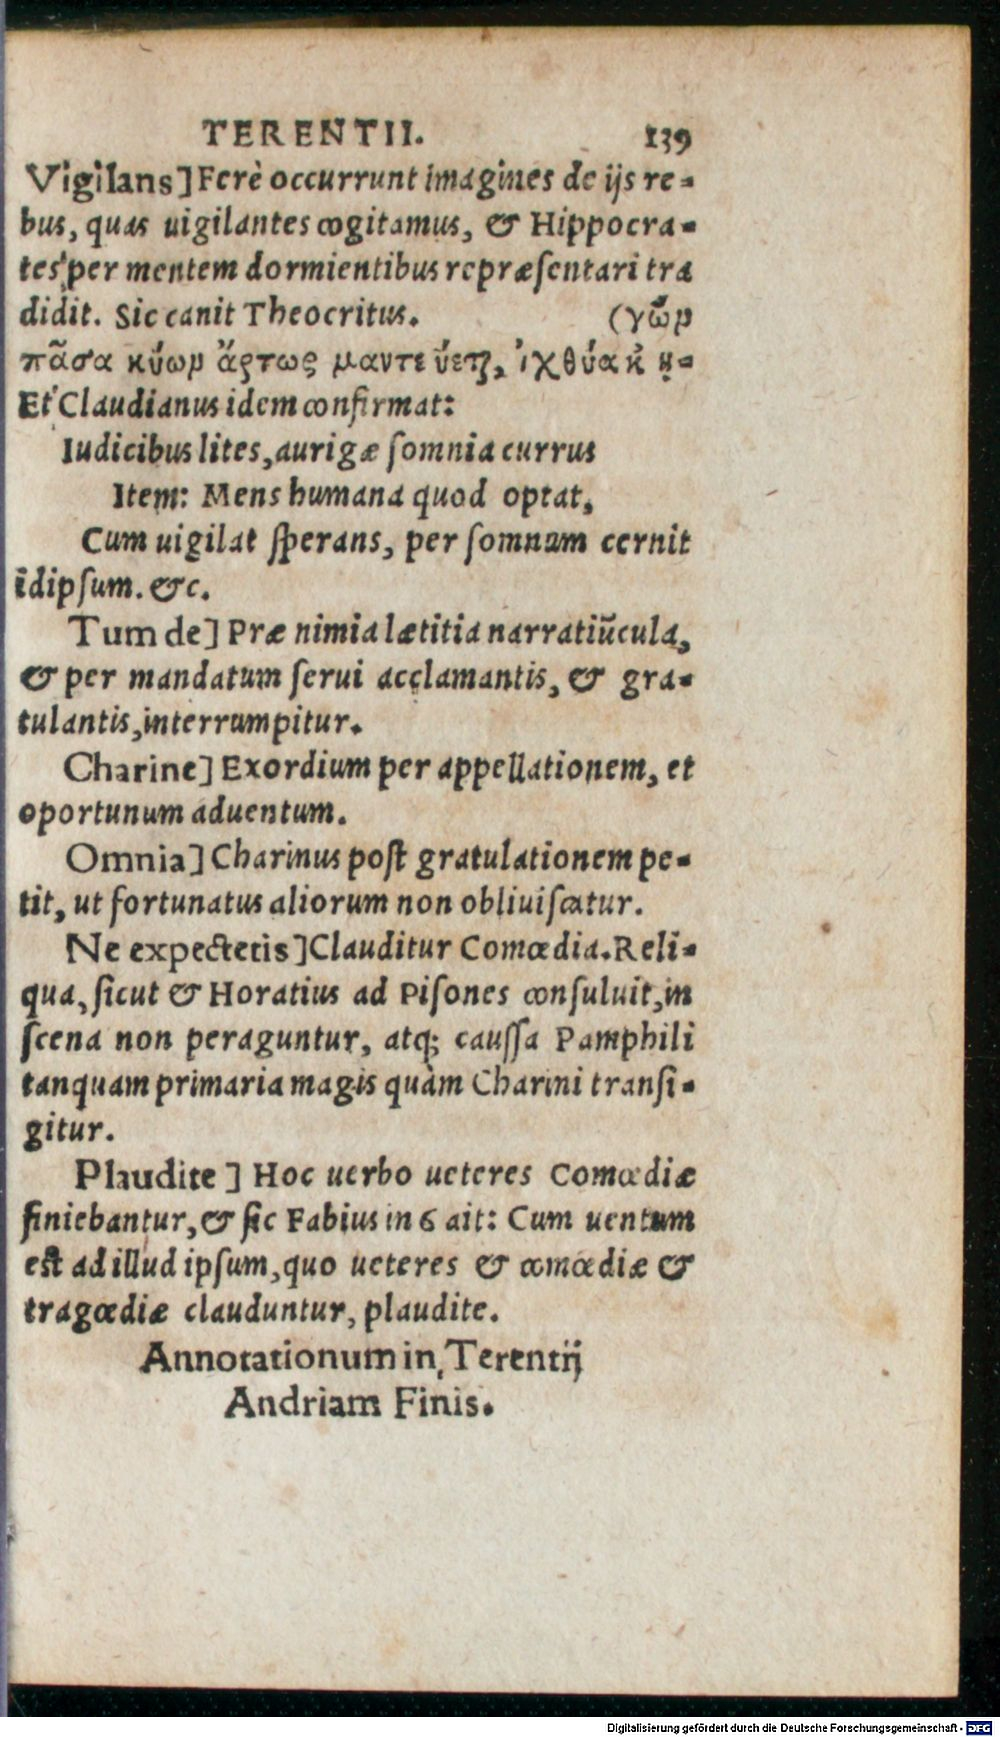 TERENTII. 139
Vigilans] Ferè occurrunt imagines de ijs re-
bus, quas uigilantes cogitamus, & Hippocra-
tes per mentem dormientibus repræſentari tra
didit. Sic canit Theocritus. (γῶν
πᾶσα κύων ἄρτως μαντεύεται, ἰχθύα κ
Et Claudianus idem confirmat:
Iudicibus lites, aurigæ ſomnia currus
Item: Mens humana quod optat,
Cum uigilat ſperans, per ſomnum cernit
idipſum. &c.
Tum de] Præ nimia lætitia narratiũcula,
& per mandatum ſerui acclamantis, & gra-
tulantis, interrumpitur.
Charine] Exordium per appellationem, et
oportunum aduentum.
Omnia] Charinus poſt gratulationem pe-
tit, ut fortunatus aliorum non obliuiſcatur.
Ne expectetis] Clauditur Comœdia. Reli-
qua, ſicut & Horatius ad Piſones conſuluit, in
ſcena non peraguntur, atq; cauſſa Pamphili
tanquam primaria magis quàm Charini transſi-
gitur.
Plaudite] Hoc uerbo ueteres Comœdiæ
finiebantur, & ſic Fabius in 6 ait: Cum uentum
eſt ad illud ipſum, quo ueteres & comœdiæ &
tragœdiæ clauduntur, plaudite.
Annotationum in Terentij
Andriam Finis.
Digitalisierung gefördert durch die Deutsche Forschungsgemeinschaft - DFG